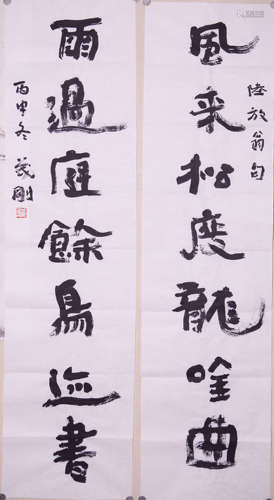 陸放翁句
風來松度龍吟曲
雨過庭餘鳥迹書
丙申冬 義剛